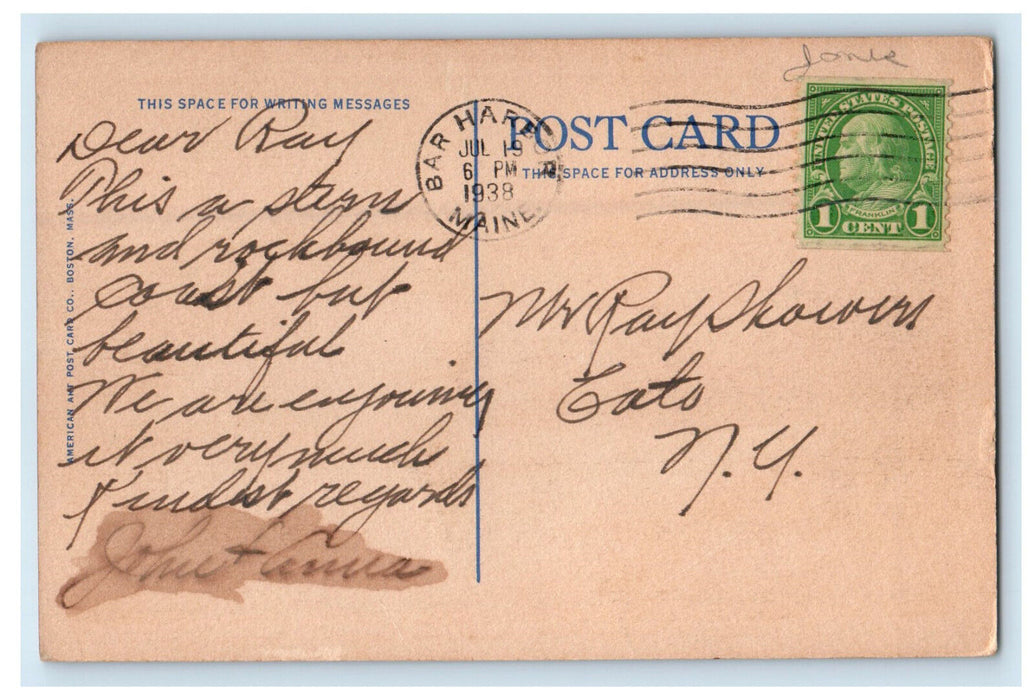 THIS SPACE FOR WRITING MESSAGES
Dear Ray
This a stern
and rockbound
Coast but
beautiful
We are enjoying
it very much
Kindest regards
John + Anna
AMERICAN ART POST CARD CO., BOSTON, MASS.
BAR HARBOR
JUL 19
6 PM
1938
MAINE
POST CARD
THIS SPACE FOR ADDRESS ONLY
UNITED STATES POSTAGE
FRANKLIN
1 CENT 1
Mr Ray Showers
Cato
N.Y.